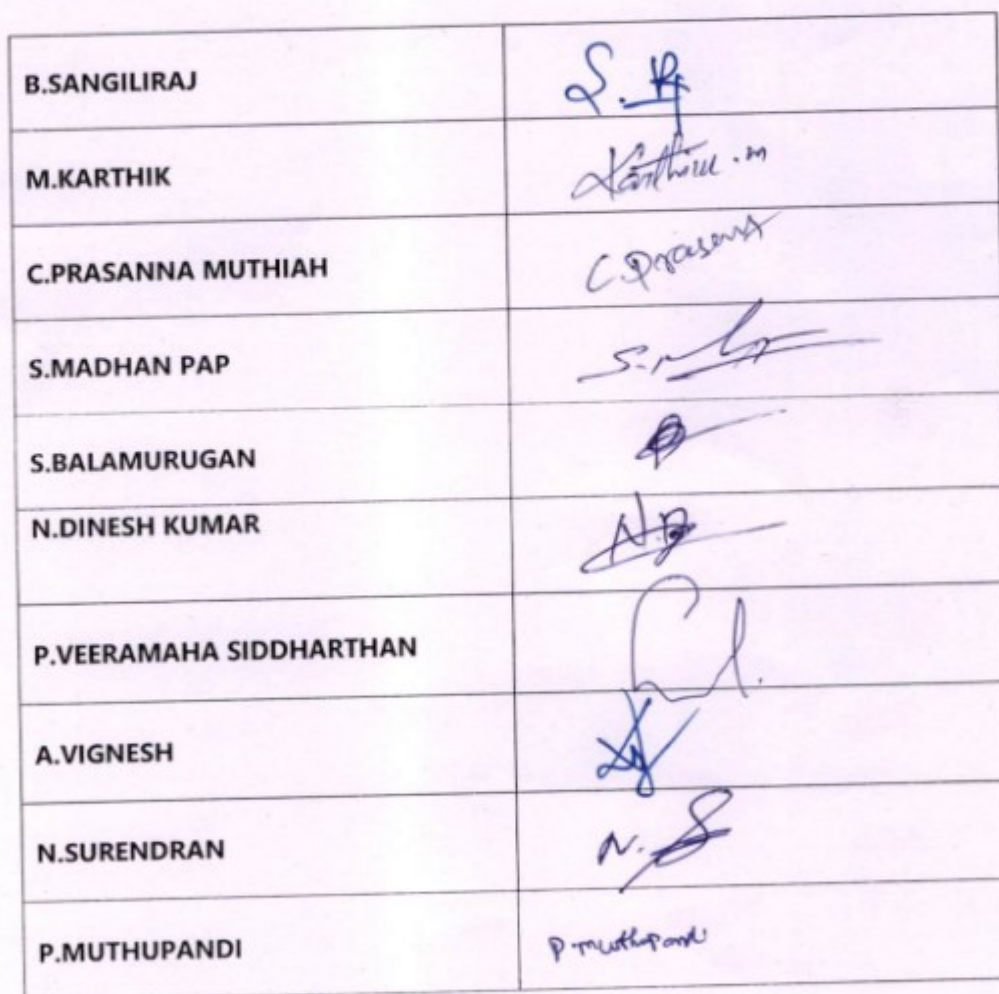 B.SANGILIRAJ
S.
M.KARTHIK
Karthik.m
C.PRASANNA MUTHIAH
C.Prasanna
S.MADHAN PAP
S.
S.BALAMURUGAN
N.DINESH KUMAR
N.D
P.VEERAMAHA SIDDHARTHAN
A.VIGNESH
N.SURENDRAN
N.S
P.MUTHUPANDI
P.muthupandi